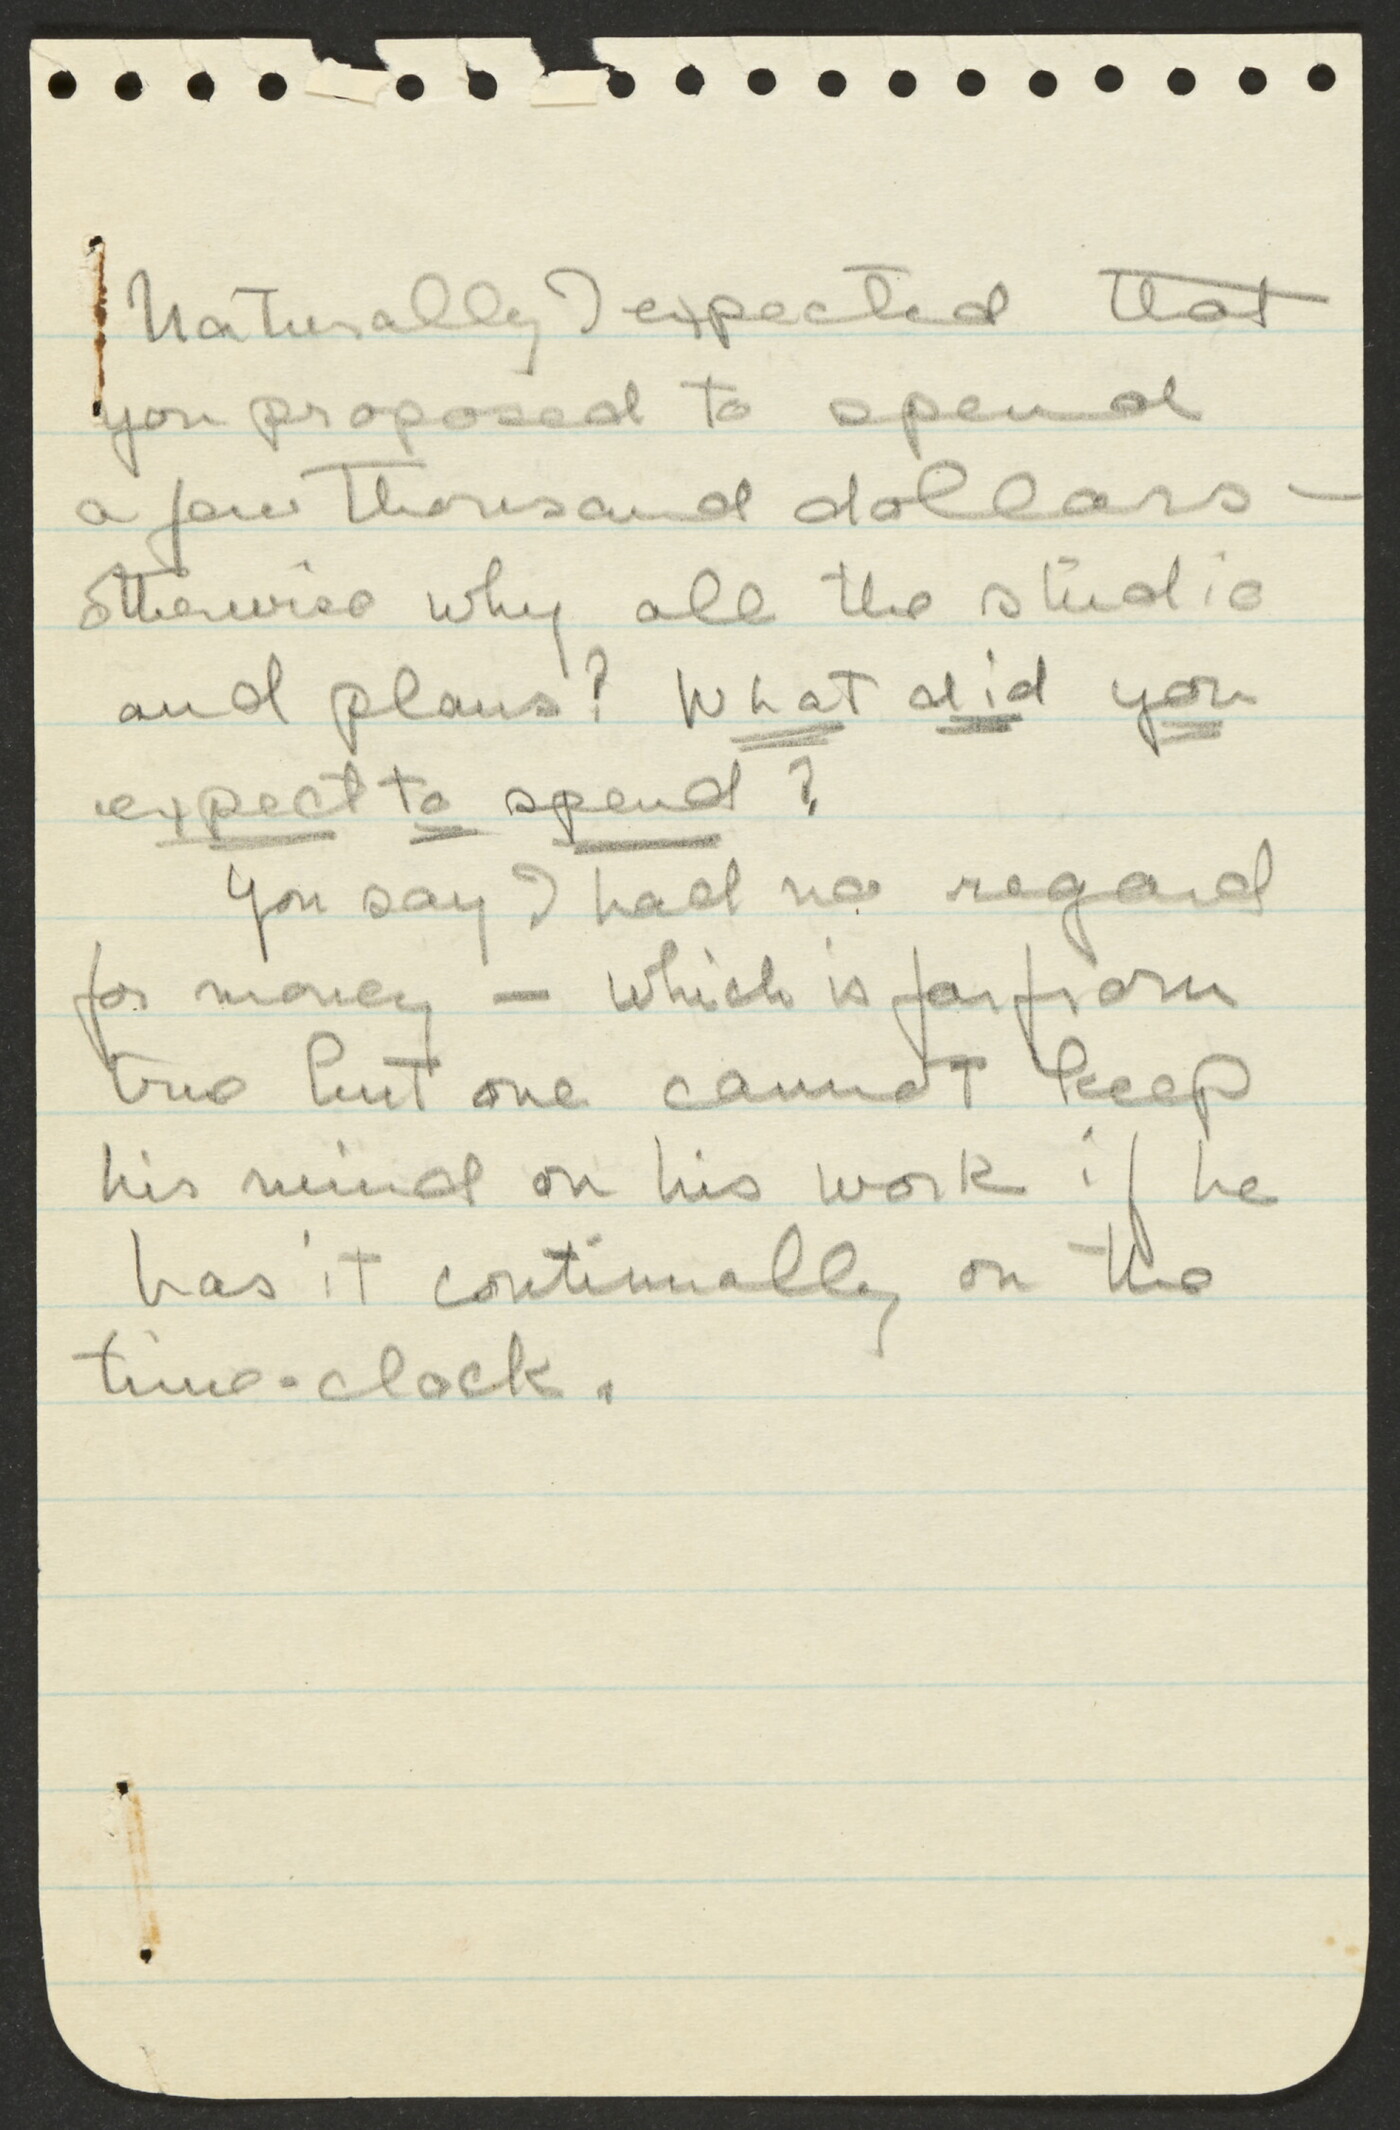 Naturally I expected that
you proposed to spend
a few thousand dollars —
otherwise why all the studio
and plans? What did you
expect to spend?
You say I had no regard
for money — which is far from
true but one cannot keep
his mind on his work if he
has it continually on the
time-clock.